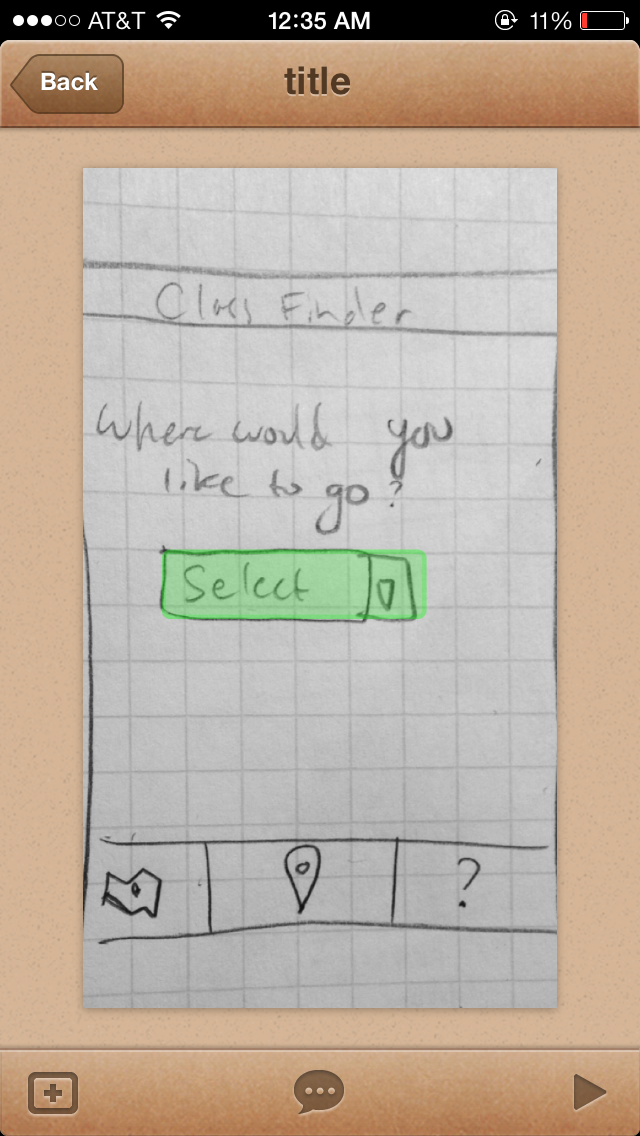 AT&T 12:35 AM 11%
Back title
Class Finder
Where would you
like to go?
Select
?